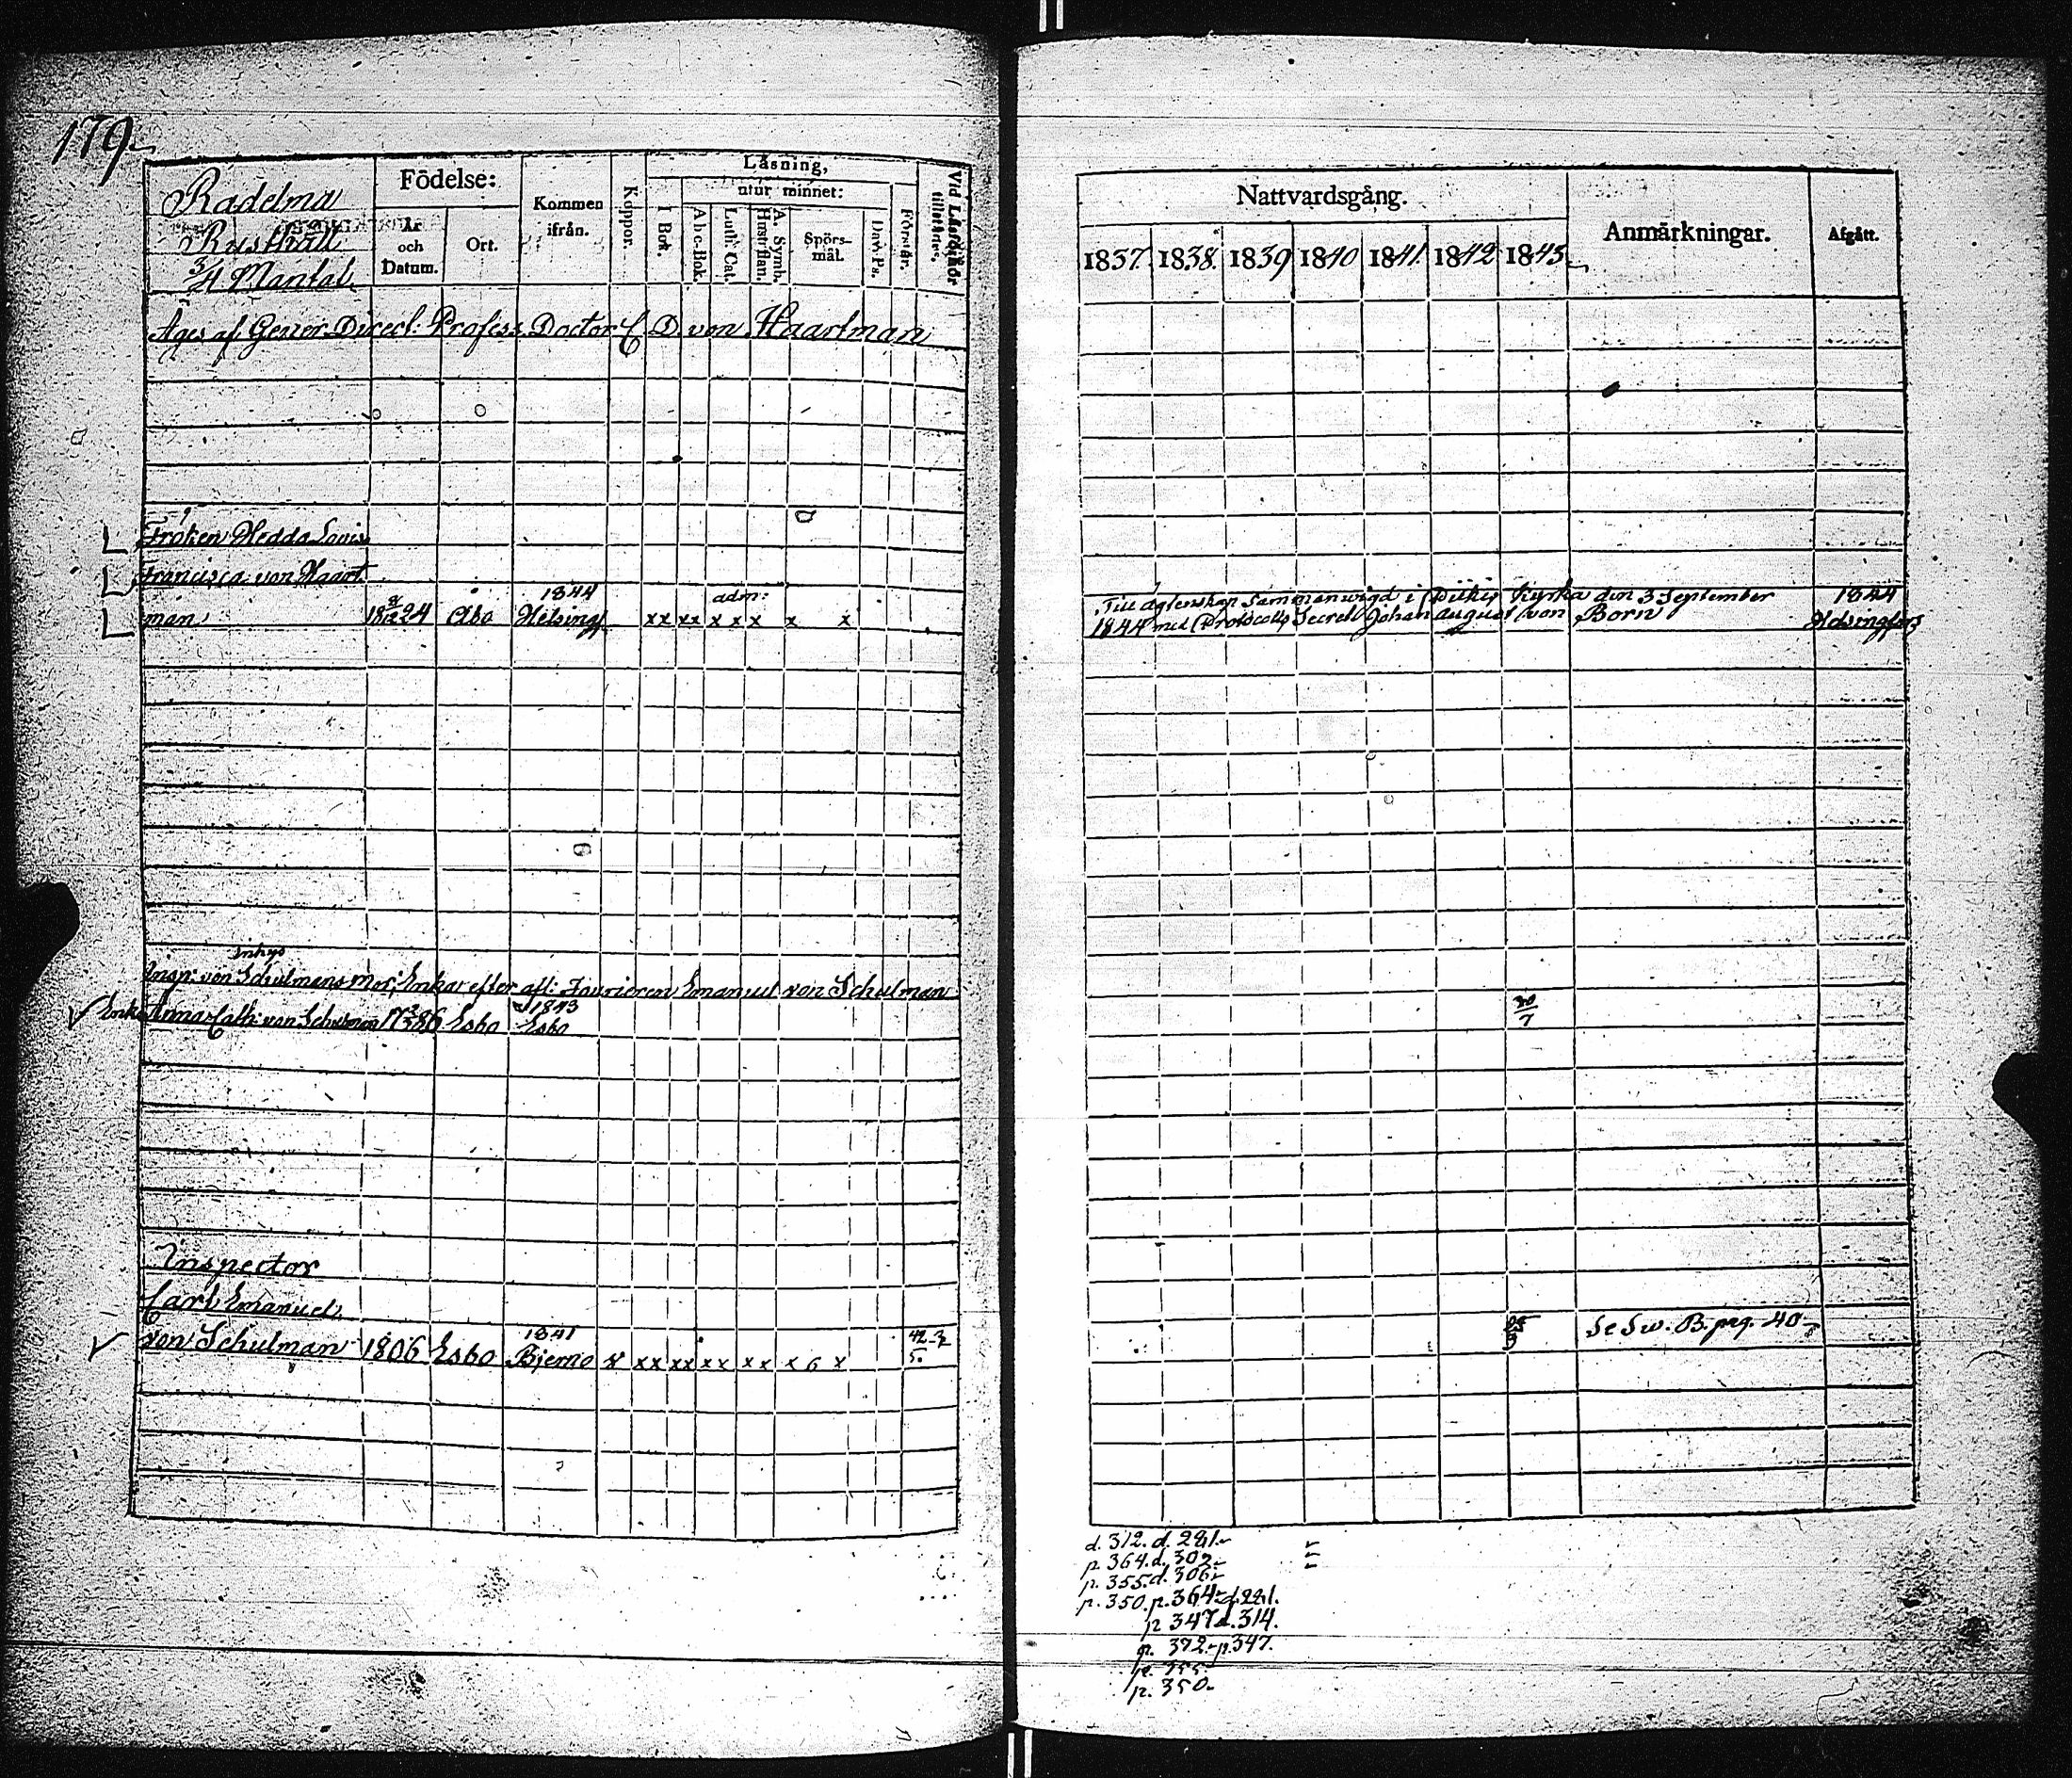 179
Radelma
Rusthåll
3/4 Mantal
Födelse:
År och Datum.
Ort.
Kommen ifrån.
Koppor.
Läsning,
I Bok.
utur minnet:
Abc-Bok.
Luth. Cat.
A. Symb. Hustaflan.
Spörsmål.
Dav. Ps.
Förstår.
Vid Läseförhör tillstädes.
Nattvardsgång.
1837. 1838. 1839 1840 1841 1842 1843
Anmärkningar.
Afgått.
Äges af Gener. Direct: Profess. Doctor C. D. von Haartman
Fröken Hedda Lovis
Francisca von Haart
man 18 24 Åbo 1844 Helsingf. adm: xx xx x x x x x
Till ägtenskap Sammanvigd i Kyrka den 3 September
1844 med Protocolls Secret. Johan August von Born
1844 Helsingfors
Inhys
Insp: von Schulmans Mor, Enka efter afl: Fourieren Emanuel von Schulman
Enka Anna Cath: von Schulman 1786 Esbo 1843 Esbo 20/7
Inspector
Carl Emanuel
von Schulman 1806 Esbo 1841 Bjerno x xx xx xx xx x 6 x 42-3 5.
Se Sw. B. pag. 40
d. 312. d. 281.
p. 364. d. 302.
p. 355. d. 306.
p. 350. p. 364. d. 281.
p 347 d. 314.
p. 372. p. 347.
p. 355.
p. 350.